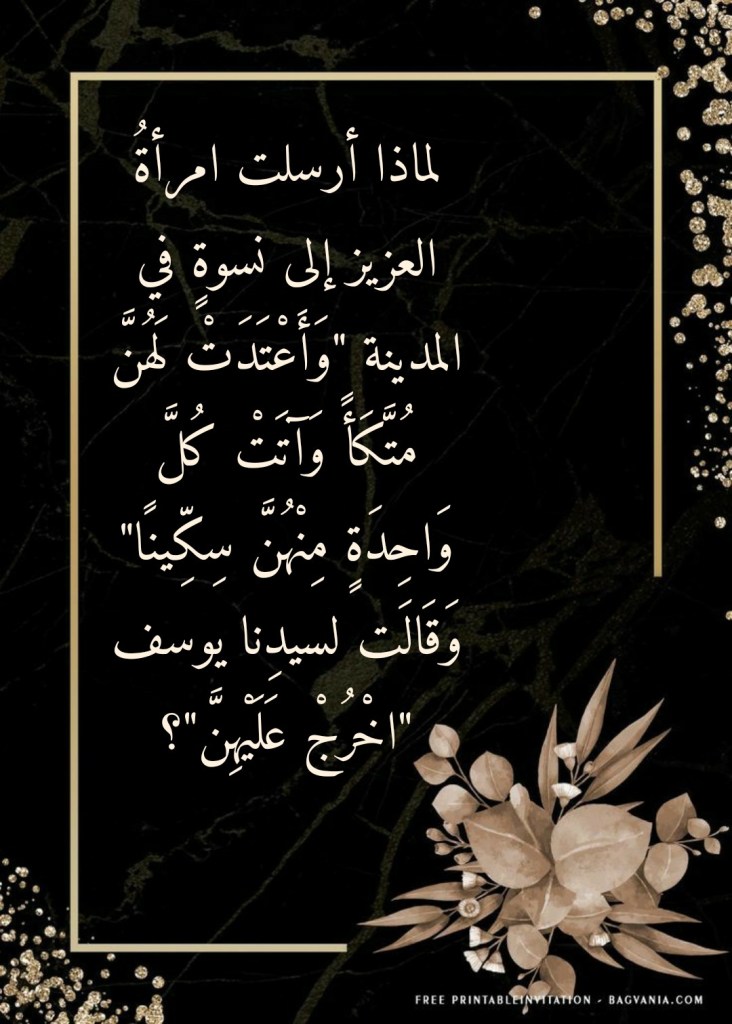 لماذا أرسلت امرأةُ
العزيز إلى نسوةٍ في
المدينة "وَأَعْتَدَتْ لَهُنَّ
مُتَّكَأً وَآتَتْ كُلَّ
وَاحِدَةٍ مِنْهُنَّ سِكِّينًا"
وَقَالَت لسيدِنا يوسف
"اخْرُجْ عَلَيْهِنَّ"؟
FREE PRINTABLEINVITATION - BAGVANIA.COM